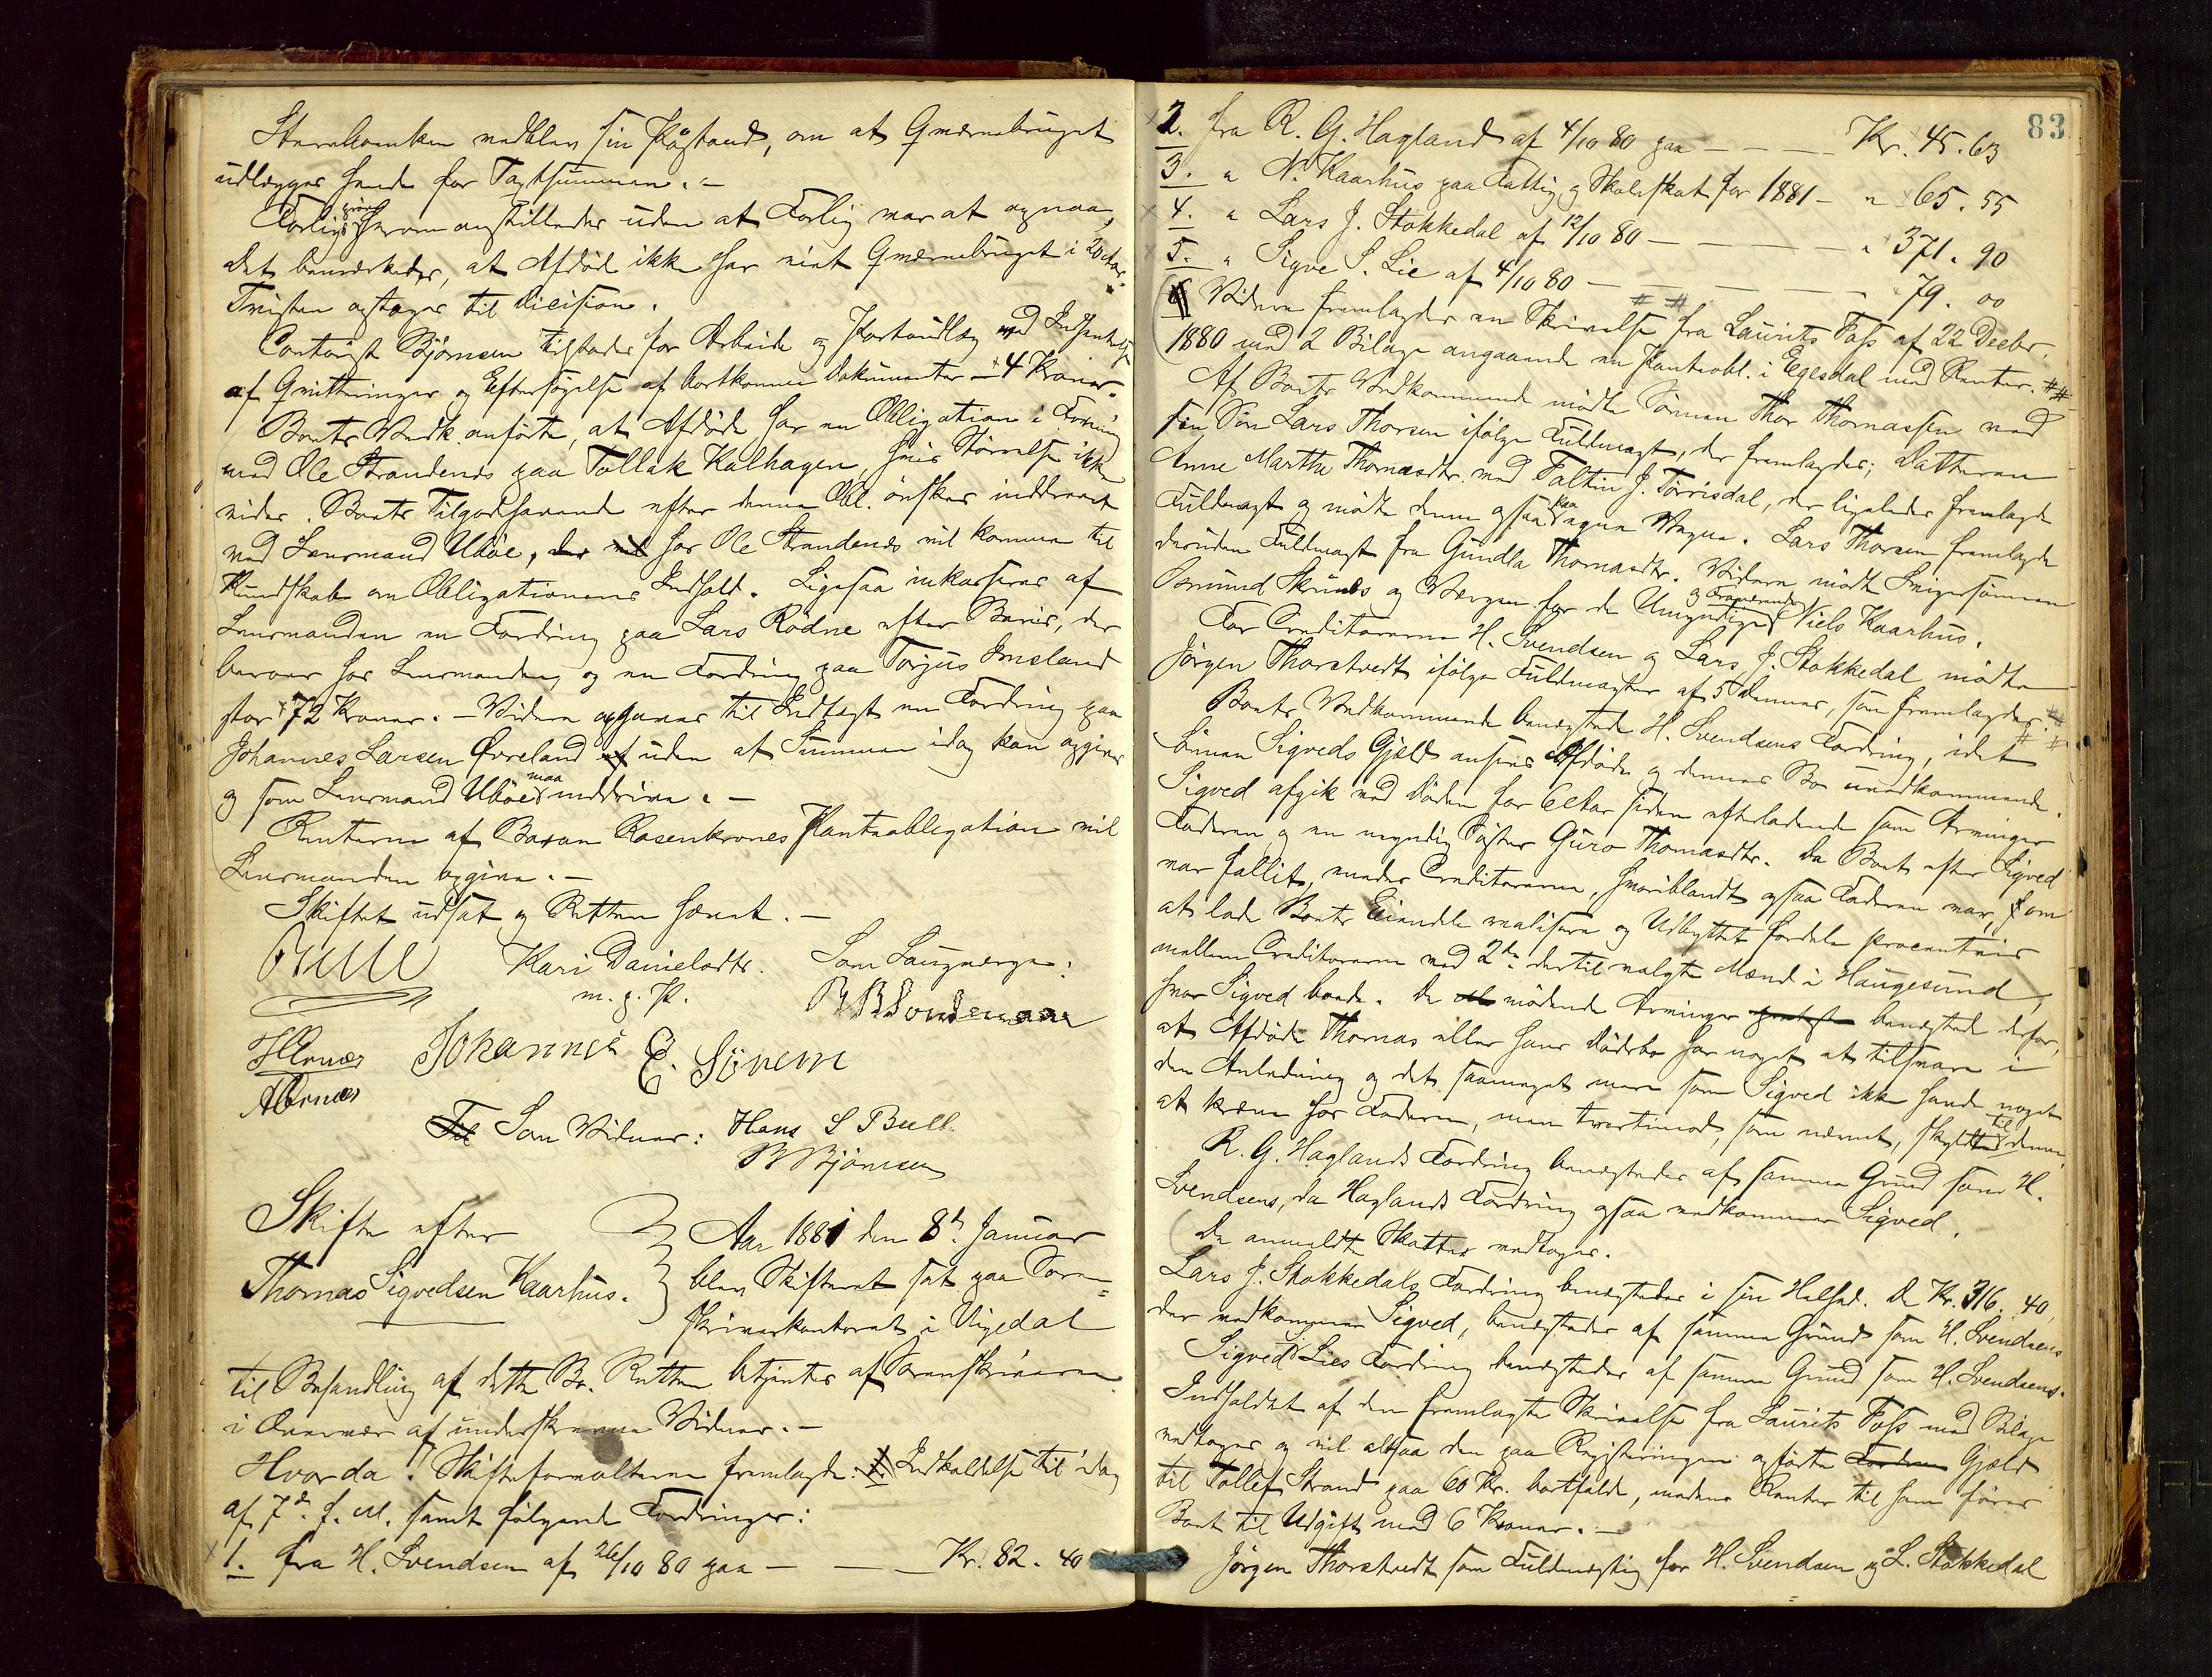 Sterboenken vedblev sin Påstand, om at Qværnebruget
udlægges hende for Taxtsummen. –
Forligsprøve herom anstilledes uden at Forlig var at opnaa,
det bemærkedes, at Afdøde ikke har eiet Qværnebruget i 20 Aar.
Tvisten optages til Decision.
Contorist Bjørnsen tilstodes for Arbeide og Portoudlæg ved Indhentelse
af Qvitteringer og Eftersøgelse af bortkomne Dokumenter – 4 Kroner.
Boets Vedk. anførte, at Afdøde har en Obligation i Forening
med Ole Strandenes paa Tollak Kalhagen, hvis Størrelse ikke
vides. Boets Tilgodehavende efter denne Obl. ønskes inddrevet
ved Lensmand Ubøe, der vil hos Ole Strandenes vil komme til
Kundskab om Obligationens Indhold. Ligesaa inkasseres af
Lensmanden en Fordring paa Lars Rødne efter Bevis, der
beroer hos Lensmanden, og en Fordring paa Torjus Imsland
stor 72 Kroner. – Videre opgaves til Indtægt en Fordring paa
Johannes Larsen Øvreland uden at Summen idag kan opgives
og som Lensmand Ubøe maa inddrive. –
Renterne af Baron Rosenkrones Panteobligation vil
Lensmanden opgive. –
Skiftet udsat og Retten hævet. –
Bull Kari Danielsdtr. Som Laugværge:
m. p. P.
Johannes E. Sønem
Til Som Vidner: Hans S Bull.
B Bjørnsen
Skifte efter Aar 1881 den 8de Januar
Thomas Sigvedsen Kaarhus. blev Skifteret sat paa Soren-
skriverkontoret i Vigedal
til Behandling af dette Bo. Retten betjentes af Sorenskriveren
i Overvær af underskrevne Vidner. –
Hvorda! Skifteforvalteren fremlagde: 1. Indkaldelse til idag
af 7de f. M. samt følgende Fordringer:
1. fra H. Svendsen af 26/10 80 paa – – – Kr. 82. 40
83
2. fra R. G. Hagland af 4/10 80 paa – – – – Kr. 45. 63
3. " N. Kaarhus paa Fattig og Skoleskat for 1881 – " 65. 55
4. " Lars J. Stokkedal af 12/10 80 – – – " 371. 90
5. " Sigve S. Lie af 4/10 80 – – – – 79. 00
Videre fremlagdes en Skrivelse fra Laurits Foss af 22 Decbr.
1880 med 2 Bilage angaaende en Panteobl. i Egesdal med Renter.
Af Boets Vedkommende mødte Sønnen Thor Thomassen ved
sin Søn Lars Thorsen ifølge Fuldmagt, der fremlagdes; Datteren
Anne Marthe Thomasdtr. med Faltin J. Tørrisdal, der ligeledes fremlagde
Fuldmagt og mødte denne ogsaa paa egne Vegne. Lars Thorsen fremlagde
desuden Fuldmagt fra Gundla Thomasdtr. Videre mødte Svigersønnen
Osmund Skeünes og Værgen for de Umyndige og Fraværende Niels Kaarhus.
For Creditorerne H. Svendsen og Lars J. Stokkedal mødte
Jørgen Thorstvedt ifølge Fuldmagter af 5 dennes, som fremlagdes.
Boets Vedkommende benægtede H. Svendsens Fordring, idet
Sønnen Sigveds Gjæld ansees Afdøde og dennes Bo uvedkommende.
Sigved afgik ved Døden for 6 Aar siden efterladende som Arvinger
Faderen og en myndig Søster Guro Thomasdtr. Da Boet efter Sigved
var fallit, enedes Creditorerne, hvoriblandt ogsaa Faderen var, om
at lade Boets Eiendele realisere og Udbyttet fordele procentvis
mellem Creditorerne ved 2de dertil valgte Mænd i Haugesund,
hvor Sigved boede. De mødende Arvinger benægtede derfor,
at Afdøde Thomas eller hans Dødsbo har noget at tilsvare i
den Anledning og det saameget mere som Sigved ikke havde noget
at kræve hos Faderen, men tvertimod, som nævnt, skyldte til denne.
R. G. Haglands Fordring benægtedes af samme Grund som H.
Svendsens, da Haglands Fordring ogsaa vedkommer Sigved.
De anmeldte Skatter vedtoges.
Lars J. Stokkedals Fordring benægtedes i sin Helhed. De Kr. 316. 40,
der vedkommer Sigved, benægtedes af samme Grund som H. Svendsens
Sigved Lies Fordring benægtedes af samme Grund som H. Svendsens.
Indholdet af den fremlagte Skrivelse fra Laurits Foss med Bilage
vedtoges og vil altsaa den paa Registreringen opførte Fordren Gjæld
til Tollef Strand paa 60 Kr. bortfalde, medens Renter til ham føres
Boet til Udgift med 6 Kroner. –
Jørgen Thorstvedt som Fuldmægtig for H. Svendsen og L. Stokkedal